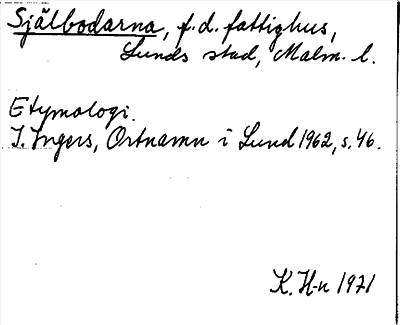 Själbodarna, f.d. fattighus,
Lunds stad, Malm. l.
Etymologi.
I. Ingers, Ortnamn i Lund 1962, s. 46.
K. H-n 1971